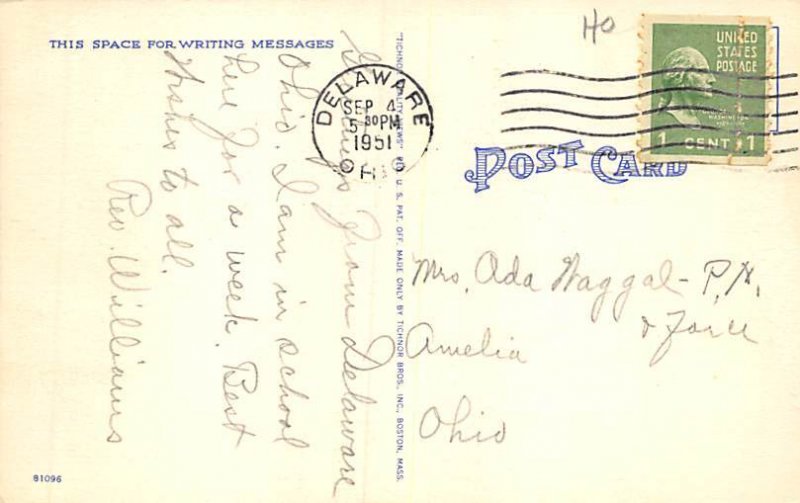 THIS SPACE FOR WRITING MESSAGES
Greetings from Delaware
Ohio. I am in school
here for a week. Best
Wishes to all.
Rev. Williams
81096
"TICHNOR QUALITY VIEWS" REG. U. S. PAT. OFF. MADE ONLY BY TICHNOR BROS., INC., BOSTON, MASS.
DELAWARE
SEP 4
5 30 PM
1951
OHIO
HO
UNITED
STATES
POSTAGE
WASHINGTON
1 CENT 1
POST CARD
Mrs. Ada Waggal - P.N.
& Force
Amelia
Ohio